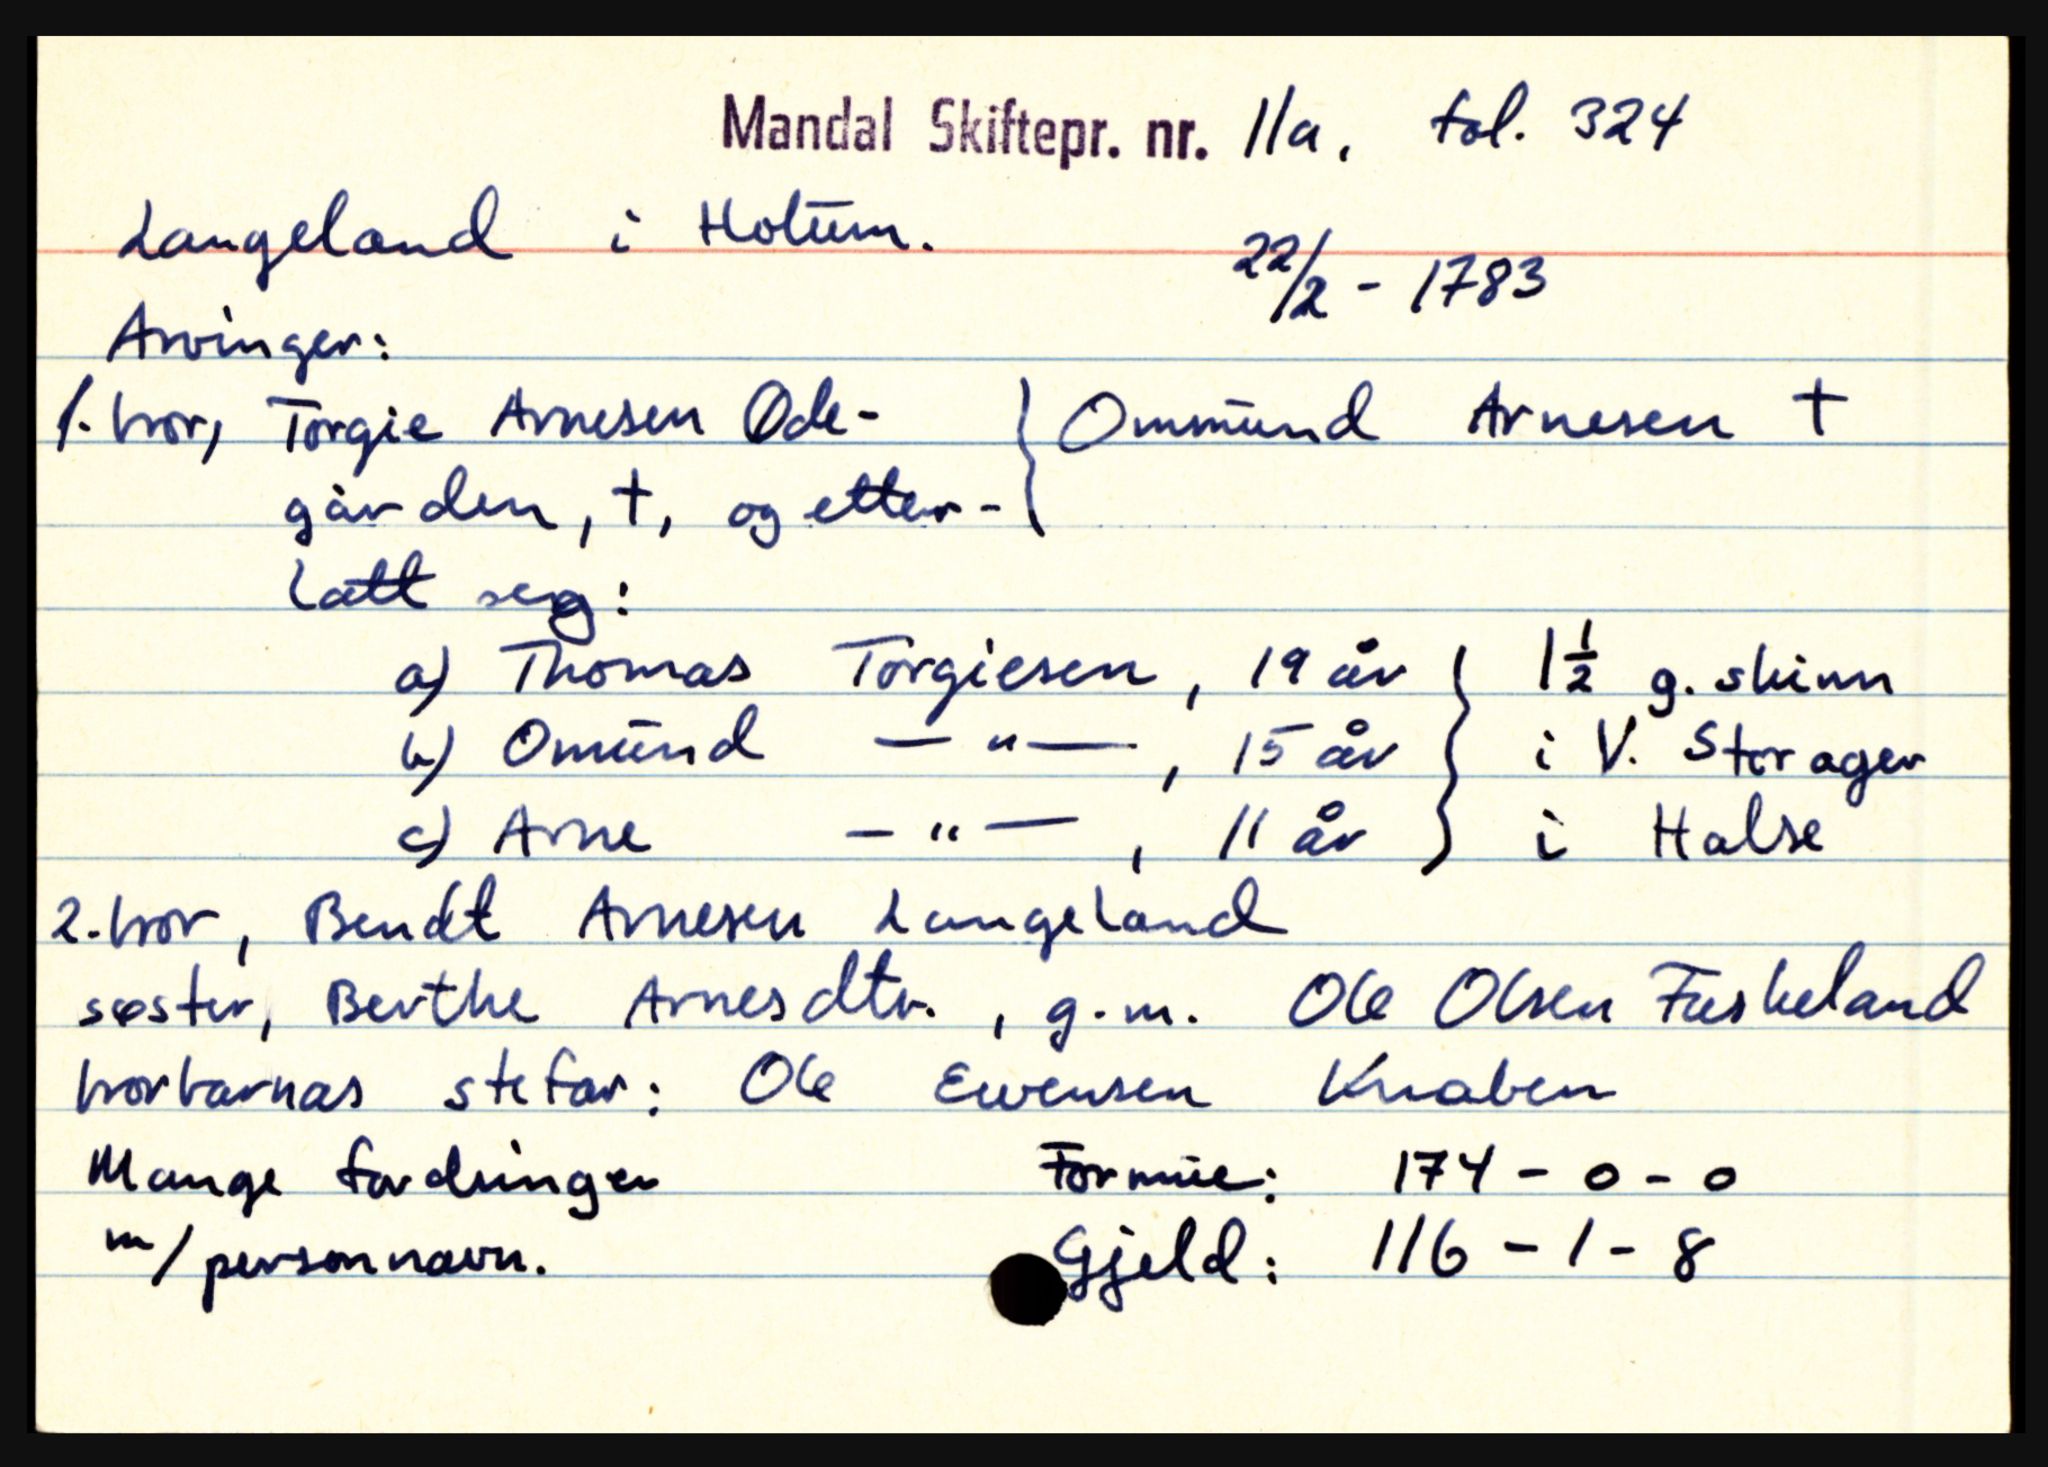 Mandal Skiftepr. nr. 11a, fol. 324
Langeland i Holum.
22/2 - 1783
Arvinger:
1. bror, Torgie Arnesen Øde- } Ommund Arnesen †
gården, †, og etter-
latt seg:
a) Thomas Torgiesen, 19 år } 1 1/2 g. skinn
b) Omund — " —, 15 år } i V. Storager
c) Arne — " —, 11 år } i Halse
2. bror, Bendt Arnesen Langeland
søster, Berthe Arnesdtr., g.m. Ole Olsen Fuskeland
brorbarnas stefar: Ole Evensen Knaben
Mange fordringer Formue: 174 - 0 - 0
m/personnavn. Gjeld: 116 - 1 - 8